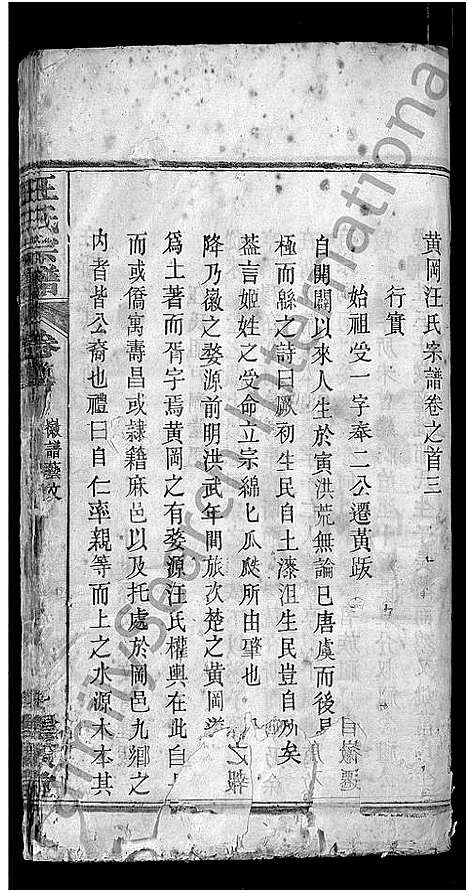 黃岡汪氏宗譜卷之首三
行實
始祖受一字奉二公遷黃䟦
自開闢以來人生於寅洪荒無論已唐虞而後
極而緜之詩曰厥初生民自土漆沮生民豈自
矣
葢言姬姓之受命立宗綿匕瓜瓞所由肇也
降乃徽之婺源前明洪武年間旅次楚之黃岡
之
爲土著而胥宇焉黃岡之有婺源汪氏權輿在此自
而或僑寓壽昌或隷籍麻邑以及托處於岡邑九鄉之
內者皆公裔也禮曰自仁率親等而上之水源木本其
汪氏宗譜
卷首
徽譜藝文
FamilySearch International